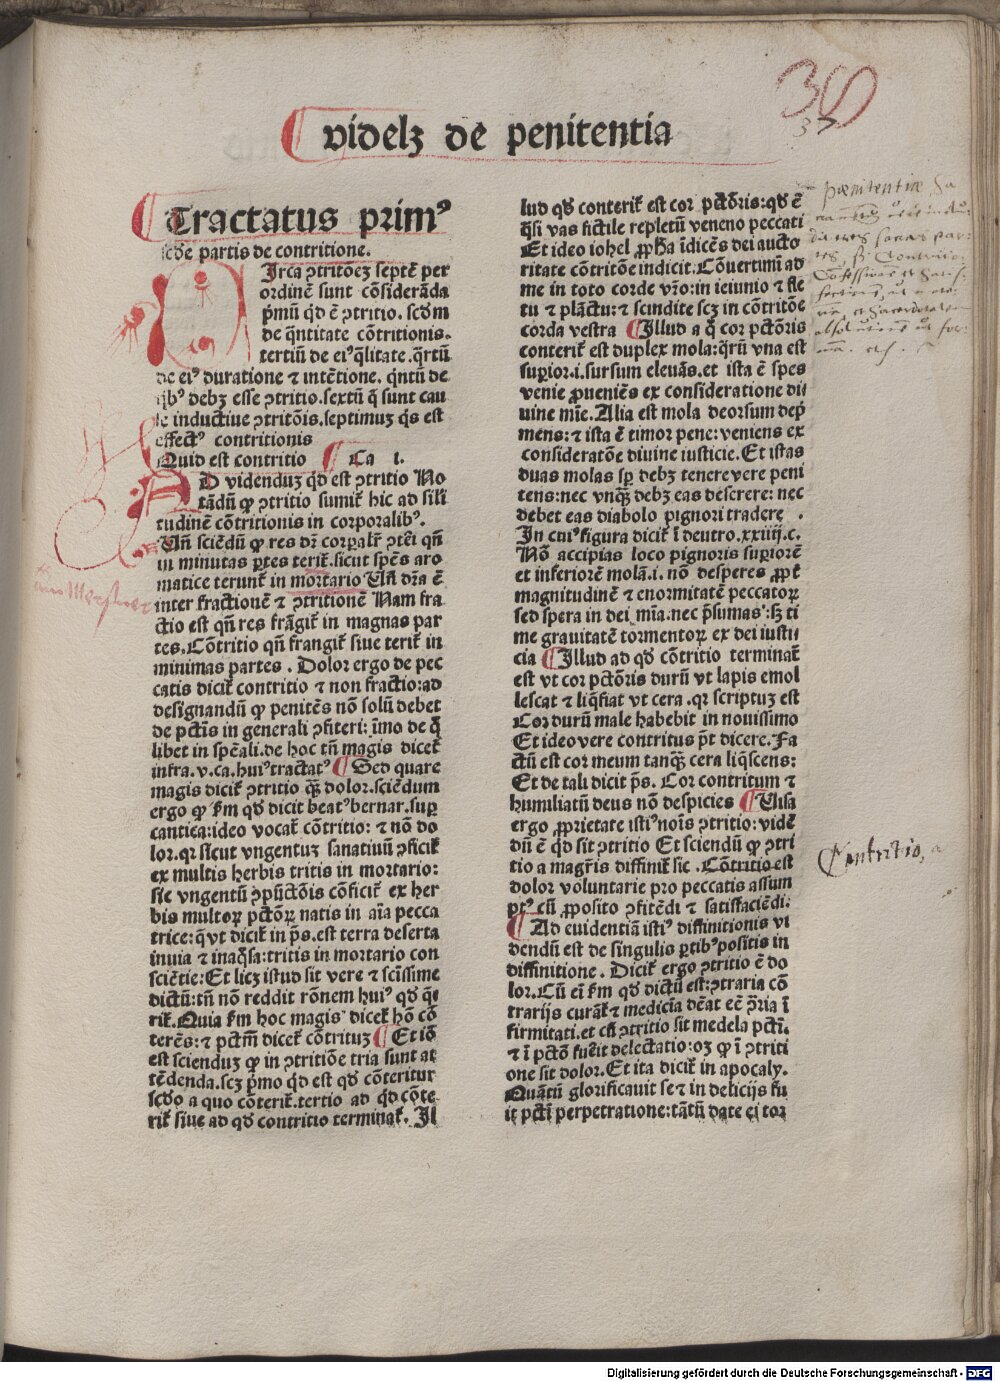 30
37
videlꝫ de penitentia
Tractatus primꝰ
scđe partis de contritione.
Irca ↄtritōeꝫ septē per
ordinē sunt cōsiderāda
p̄mū qd ē ↄtritio. scd̄m
de q̄ntitate cōtritionis.
tertiū de eiꝰ q̄litate. q̄rtū
de eiꝰ duratione ⁊ intētione. q̄ntū de
qͥbꝰ debꝫ esse ↄtritio. sextū q̄ sunt cau
se inductiue ↄtritōis. septimuꝫ qͥs est
effectꝰ contritionis
Quid est contritio ¶ Ca i.
AD videnduꝫ qͥd est ↄtritio No
tādū ꝙ ↄtritio sumit̄ hic ad sili
tudinē cōtritionis in corporalibꝰ.
Vn̄ sciēdū ꝙ res dr̄ corꝑalr̄ ↄteri qn̄
in minutas ꝑtes terit̄. sicut spēs aro
matice terunt̄ in mortario Vn̄ dr̄a ē
inter fractionē ⁊ ↄtritionē Nam fra
ctio est qn̄ res frāgit̄ in magnas par
tes. Cōtritio qn̄ frangit̄ siue terit̄ in
minimas partes. Dolor ergo de pec
catis dicit̄ contritio ⁊ non fractio: ad
designandū ꝙ penitēs nō solū debet
de pctīs in generali ↄfiteri: īmo de q̄
libet in spēali. de hoc tn̄ magis dicet̄
infra. v. ca. huiꝰ tractatꝰ ¶ Sed quare
magis dicit̄ ↄtritio qꝫ̄ dolor. sciēdum
ergo ꝙ fm̄ qd̄ dicit beatꝰ bernar. suꝑ
cantica: ideo vocat̄ cōtritio: ⁊ nō do
lor. qr sicut vngentuꝫ sanatiuū ↄficit̄
ex multis herbis tritis in mortario:
sic vngentū ↄpūctōis cōficit̄ ex her
bis multoꝝ pctōꝝ natis in aīa pecca
trice: q̄ vt dicit̄ in ps̄. est terra deserta
inuia ⁊ inaq̄sa: tritis in mortario con
sciētie: Et licꝫ istud sit vere ⁊ scīssime
dictū: tn̄ nō reddit rōnem huiꝰ qd̄ q̄ri
rit̄. Quia fm̄ hoc magis dicet̄ hō cō
terēs: ⁊ pctm̄ dicet̄ cōtrituꝫ ¶ Et iō
est sciendum ꝙ in ↄtritiōe tria sunt at
tēdenda. scꝫ pͥmo qͥd est qd̄ cōteritur
scd̄o a quo cōterit̄. tertio ad qͥd cōte
rit̄ siue ad qd̄ contritio terminat̄. Il
lud qd̄ conterit̄ est cor pctōris: qd̄ ē
q̄si vas fictile repletū veneno peccati
Et ideo iohel ꝓpħa īdicēs dei aucto
ritate cōtritōē indicit. Cōuertimī ad
me in toto corde vr̄o: in ieiunio ⁊ fle
tu ⁊ plāctu: ⁊ scindite scꝫ in cōtritōē
corda vestra ¶ Illud a q̊ cor pctōris
conterit̄ est duplex mola: q̄rū vna est
suꝑior. i. sursum eleuās. et ista ē spes
venie ꝓueniēs ex consideratione di
uine mīe. Alia est mola deorsum dep̄
mens: ⁊ ista ē timor pene: veniens ex
consideratōe diuine iusticie. Et istas
duas molas sꝑ debꝫ tenere vere peni
tens: nec vnqꝫ̄ debꝫ eas descrere: nec
debet eas diabolo pignori tradere .
In cuiꝰ figura dicit̄ i deutro. xxiiij. c.
Nō accipias loco pignoris suꝑiorē
et inferiorē molā. i. nō desperes ꝓpt̄
magnitudinē ⁊ enormitatē peccatoꝝ
sed spera in dei mīa. nec p̄sumas: sꝫ ti
me grauitatē tormentoꝝ ex dei iusti
cia ¶ Illud ad qd̄ cōtritio terminat̄
est vt cor pctōris durū vt lapis emol
lescat ⁊ liq̄fiat vt cera. qr scriptuꝫ est
Cor durū male habebit in nouissimo
Et ideo vere contritus pōt dicere. Fa
ctū est cor meum tanqꝫ̄ cera liq̄scens:
Et de tali dicit ps̄. Cor contritum ⁊
humiliatū deus nō despicies ¶ Visa
ergo ꝓprietate istiꝰ noīs ↄtritio: vidē
dū ē qͥd sit ↄtritio Et sciendū ꝙ ↄtri
tio a magrīs diffinit̄ sic. Cōtritio est
dolor voluntarie pro peccatis assum
ptꝰ cū ꝓposito ↄfitēdi ⁊ satisfaciēdi:
¶ Ad euidentiā istiꝰ diffinitionis vi
dendū est de singulis ꝑtibꝰ positis in
diffinitione. Dicit̄ ergo ↄtritio ē do
lor. Cū eī fm̄ qd̄ dictū est: ↄtraria cō
trarijs curant̄ ⁊ medicīa dēat eē ↄ̄ria ī
firmitati. et cū ↄtritio sit medela pctī.
⁊ ī pctō fuerit delectatio: oꝫ ꝙ ī ↄtriti
one sit dolor. Et ita dicit̄ in apocaly.
Quātū glorificauit se ⁊ in delicijs fu
it pctī perpetratione: tātū date ei tor
Contritio,
Digitalisierung gefördert durch die Deutsche Forschungsgemeinschaft - DFG